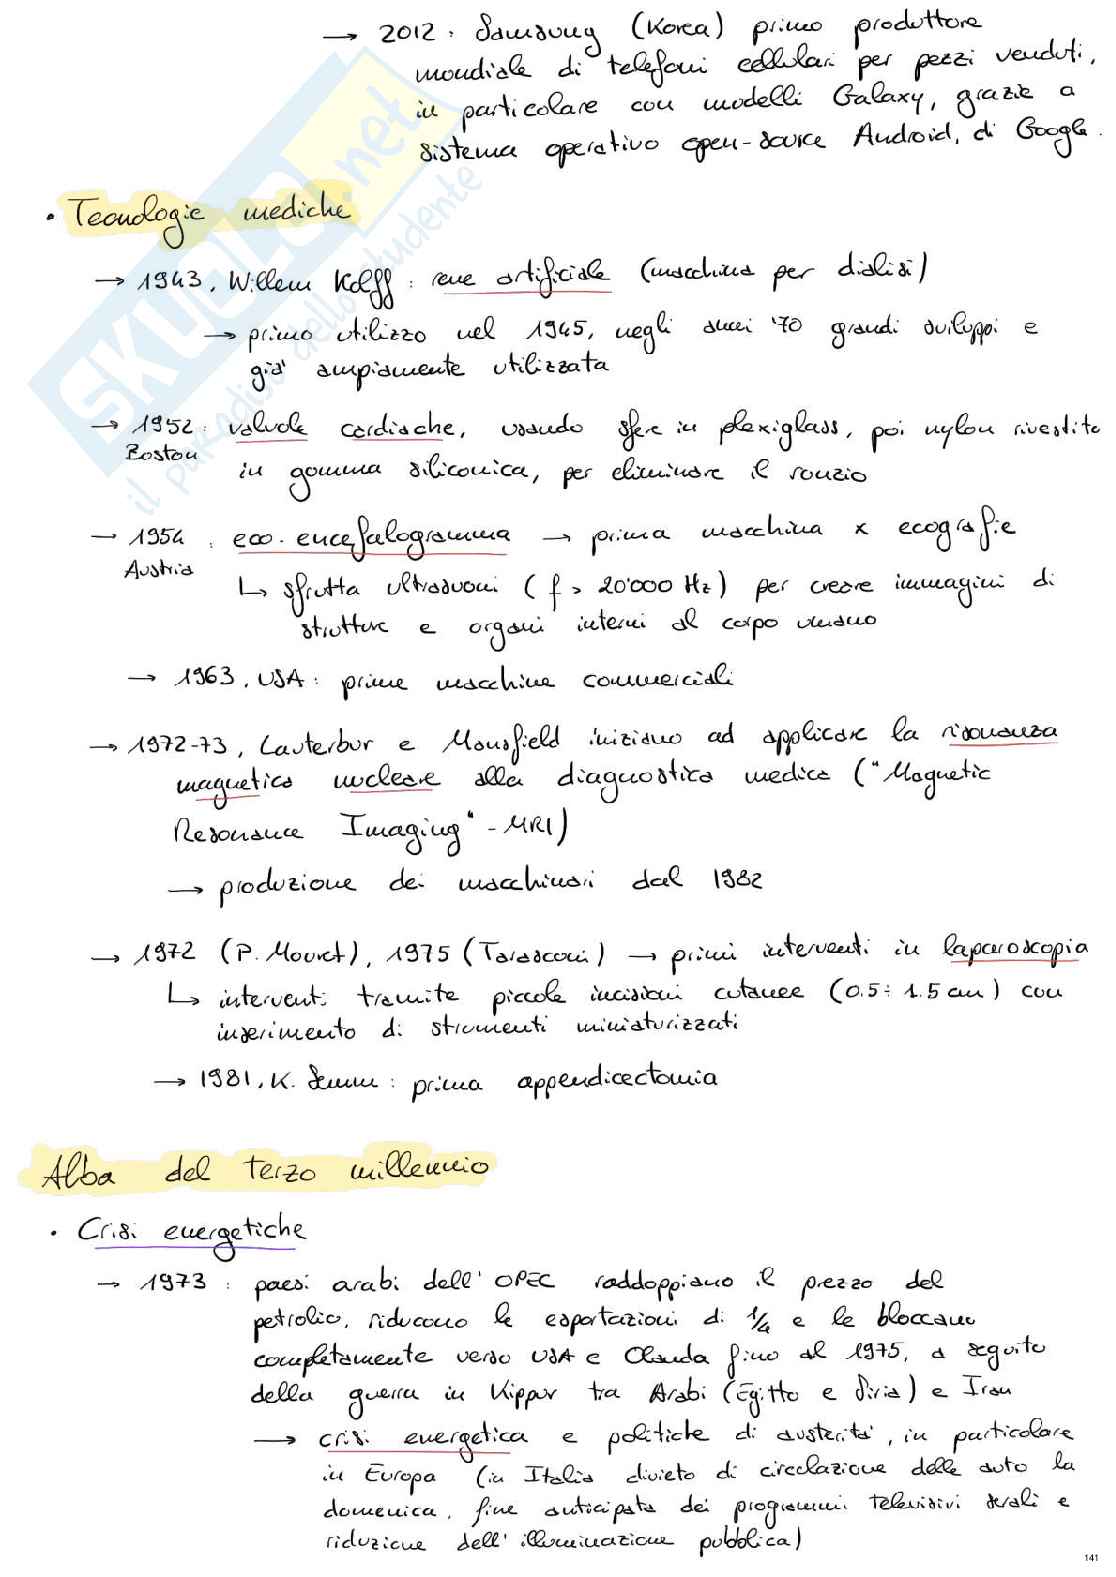 → 2012: Samsung (Korea) primo produttore
mondiale di telefoni cellulari per pezzi venduti,
in particolare con modelli Galaxy, grazie a
sistema operativo open-source Android, di Google.
• Tecnologie mediche
→ 1943, Willem Kolff: rene artificiale (macchina per dialisi)
→ primo utilizzo nel 1945, negli anni '70 grandi sviluppi e
già ampiamente utilizzata
→ 1952: valvole cardiache, usando sfere in plexiglass, poi nylon rivestito
Boston in gomma siliconica, per eliminare il ronzio
→ 1954: eco-encefalogramma → prima macchina x ecografie
Austria
↳ sfrutta ultrasuoni (f > 20'000 Hz) per creare immagini di
strutture e organi interni al corpo umano
→ 1963, USA: prime macchine commerciali
→ 1972-73, Lauterbur e Mansfield iniziano ad applicare la risonanza
magnetica nucleare alla diagnostica medica ("Magnetic
Resonance Imaging" - MRI)
→ produzione dei macchinari dal 1982
→ 1972 (P. Mouret), 1975 (Tarasconi) → primi interventi in laparoscopia
↳ interventi tramite piccole incisioni cutanee (0.5÷1.5 cm) con
inserimento di strumenti miniaturizzati
→ 1981, K. Semm: prima appendicectomia
Alba del terzo millennio
• Crisi energetiche
→ 1973: paesi arabi dell'OPEC raddoppiano il prezzo del
petrolio, riducono le esportazioni di 1/4 e le bloccano
completamente verso USA e Olanda fino al 1975, a seguito
della guerra in Kippur tra Arabi (Egitto e Siria) e Iran
→ crisi energetica e politiche di austerità, in particolare
in Europa (in Italia divieto di circolazione delle auto la
domenica, fine anticipata dei programmi televisivi serali e
riduzione dell'illuminazione pubblica)
141
SKUOLA.net
il paradiso dello studente